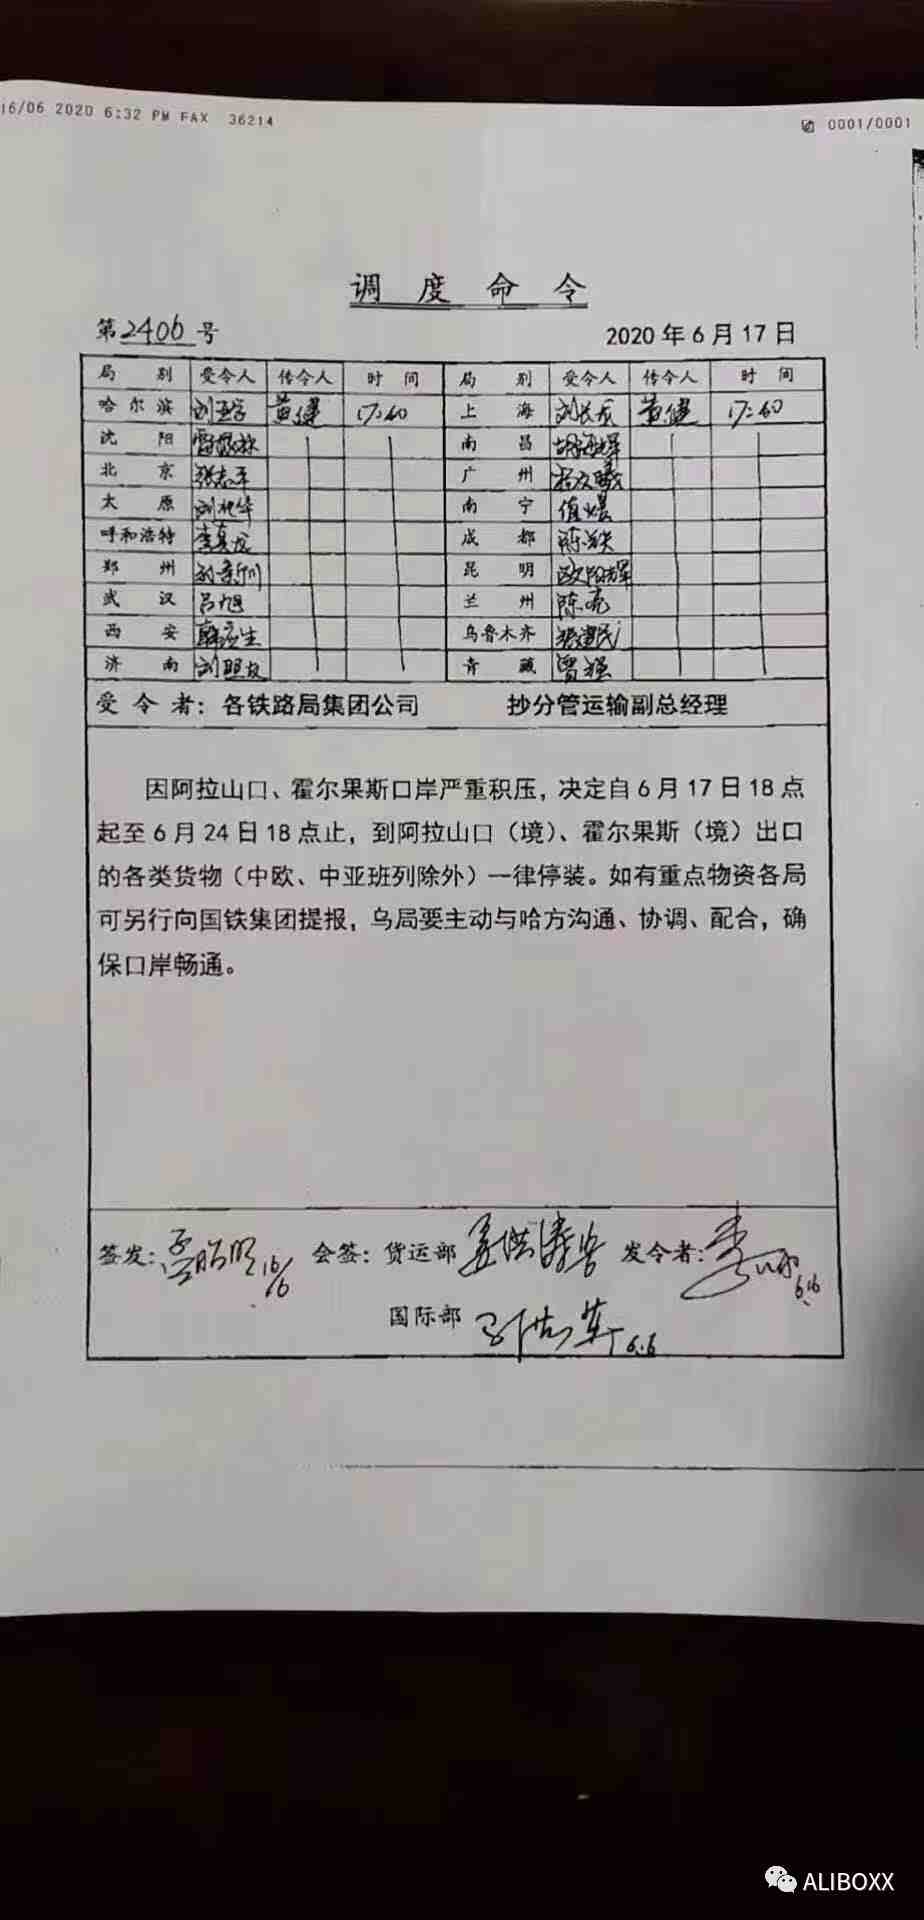 16/06 2020 6:32 PM FAX 36214
0001/0001
调度命令
第2406号 2020年6月17日
局别 受令人 传令人 时间 局别 受令人 传令人 时间
哈尔滨 黄健 17:40 上海 刘长友 黄健 17:40
沈阳 南昌
北京 张志平 广州
太原 南宁
呼和浩特 成都
郑州 昆明 欧阳辉
武汉 吕旭 兰州 陈亮
西安 乌鲁木齐 张建民
济南 青藏 曾强
受令者：各铁路局集团公司 抄分管运输副总经理
因阿拉山口、霍尔果斯口岸严重积压，决定自6月17日18点
起至6月24日18点止，到阿拉山口（境）、霍尔果斯（境）出口
的各类货物（中欧、中亚班列除外）一律停装。如有重点物资各局
可另行向国铁集团提报，乌局要主动与哈方沟通、协调、配合，确
保口岸畅通。
签发： 16/6 会签：货运部 发令者： 6.16
国际部 6.16
ALIBOXX